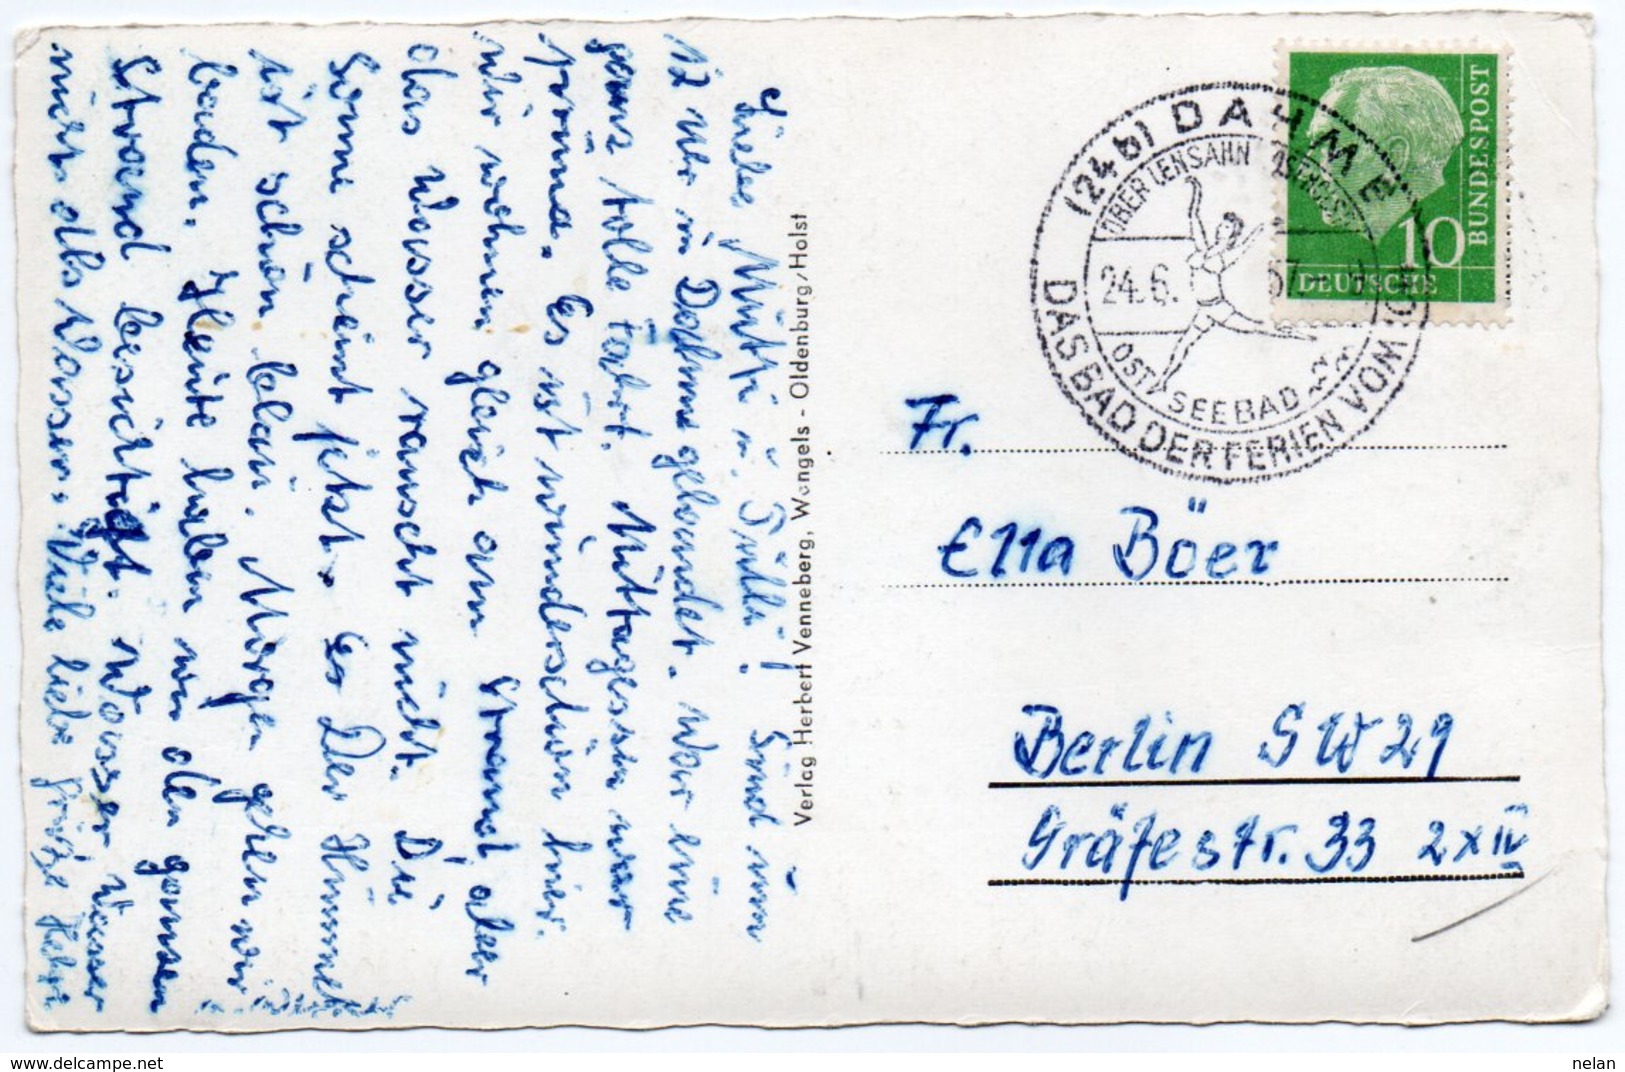 Liebe Mutti u. 
! Sind um
12 Uhr in Dahme gelandet. War eine
ganz tolle Fahrt. Mittagessen war
prima. Es ist wunderschön hier.
Wir wohnen gleich am Strand aber
das Wasser rauscht nicht. Die
Sonne scheint jetzt. Der Himmel
ist schon blau. Morgen gehen wir
baden. Heute haben wir den ganzen
Strand besichtigt. Wasser
nichts als Wasser. Viele liebe Grüße
Verlag Herbert Venneberg, Wangels - Oldenburg/Holst
(24b) DAHME
ÜBER LENSAHN
24.6. 57
OSTSEEBAD
DAS BAD DER FERIEN VOM
BUNDESPOST
10
DEUTSCHE
Fr.
Ella Böer
Berlin SW 29
Gräfestr. 33 2xIV
nelan